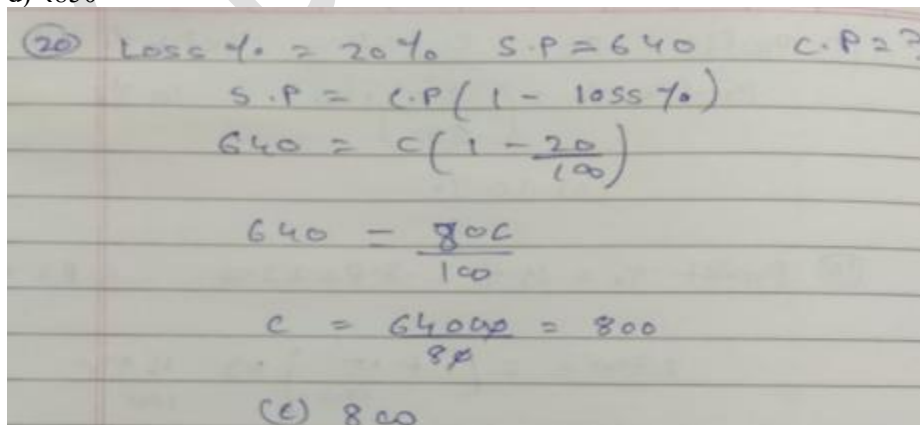 (20) Loss % = 20% S.P = 640 C.P = ?
S.P = C.P ( 1 - loss % )
640 = C ( 1 - 20/100 )
640 = 80C/100
C = 64000/80 = 800
(C) 800